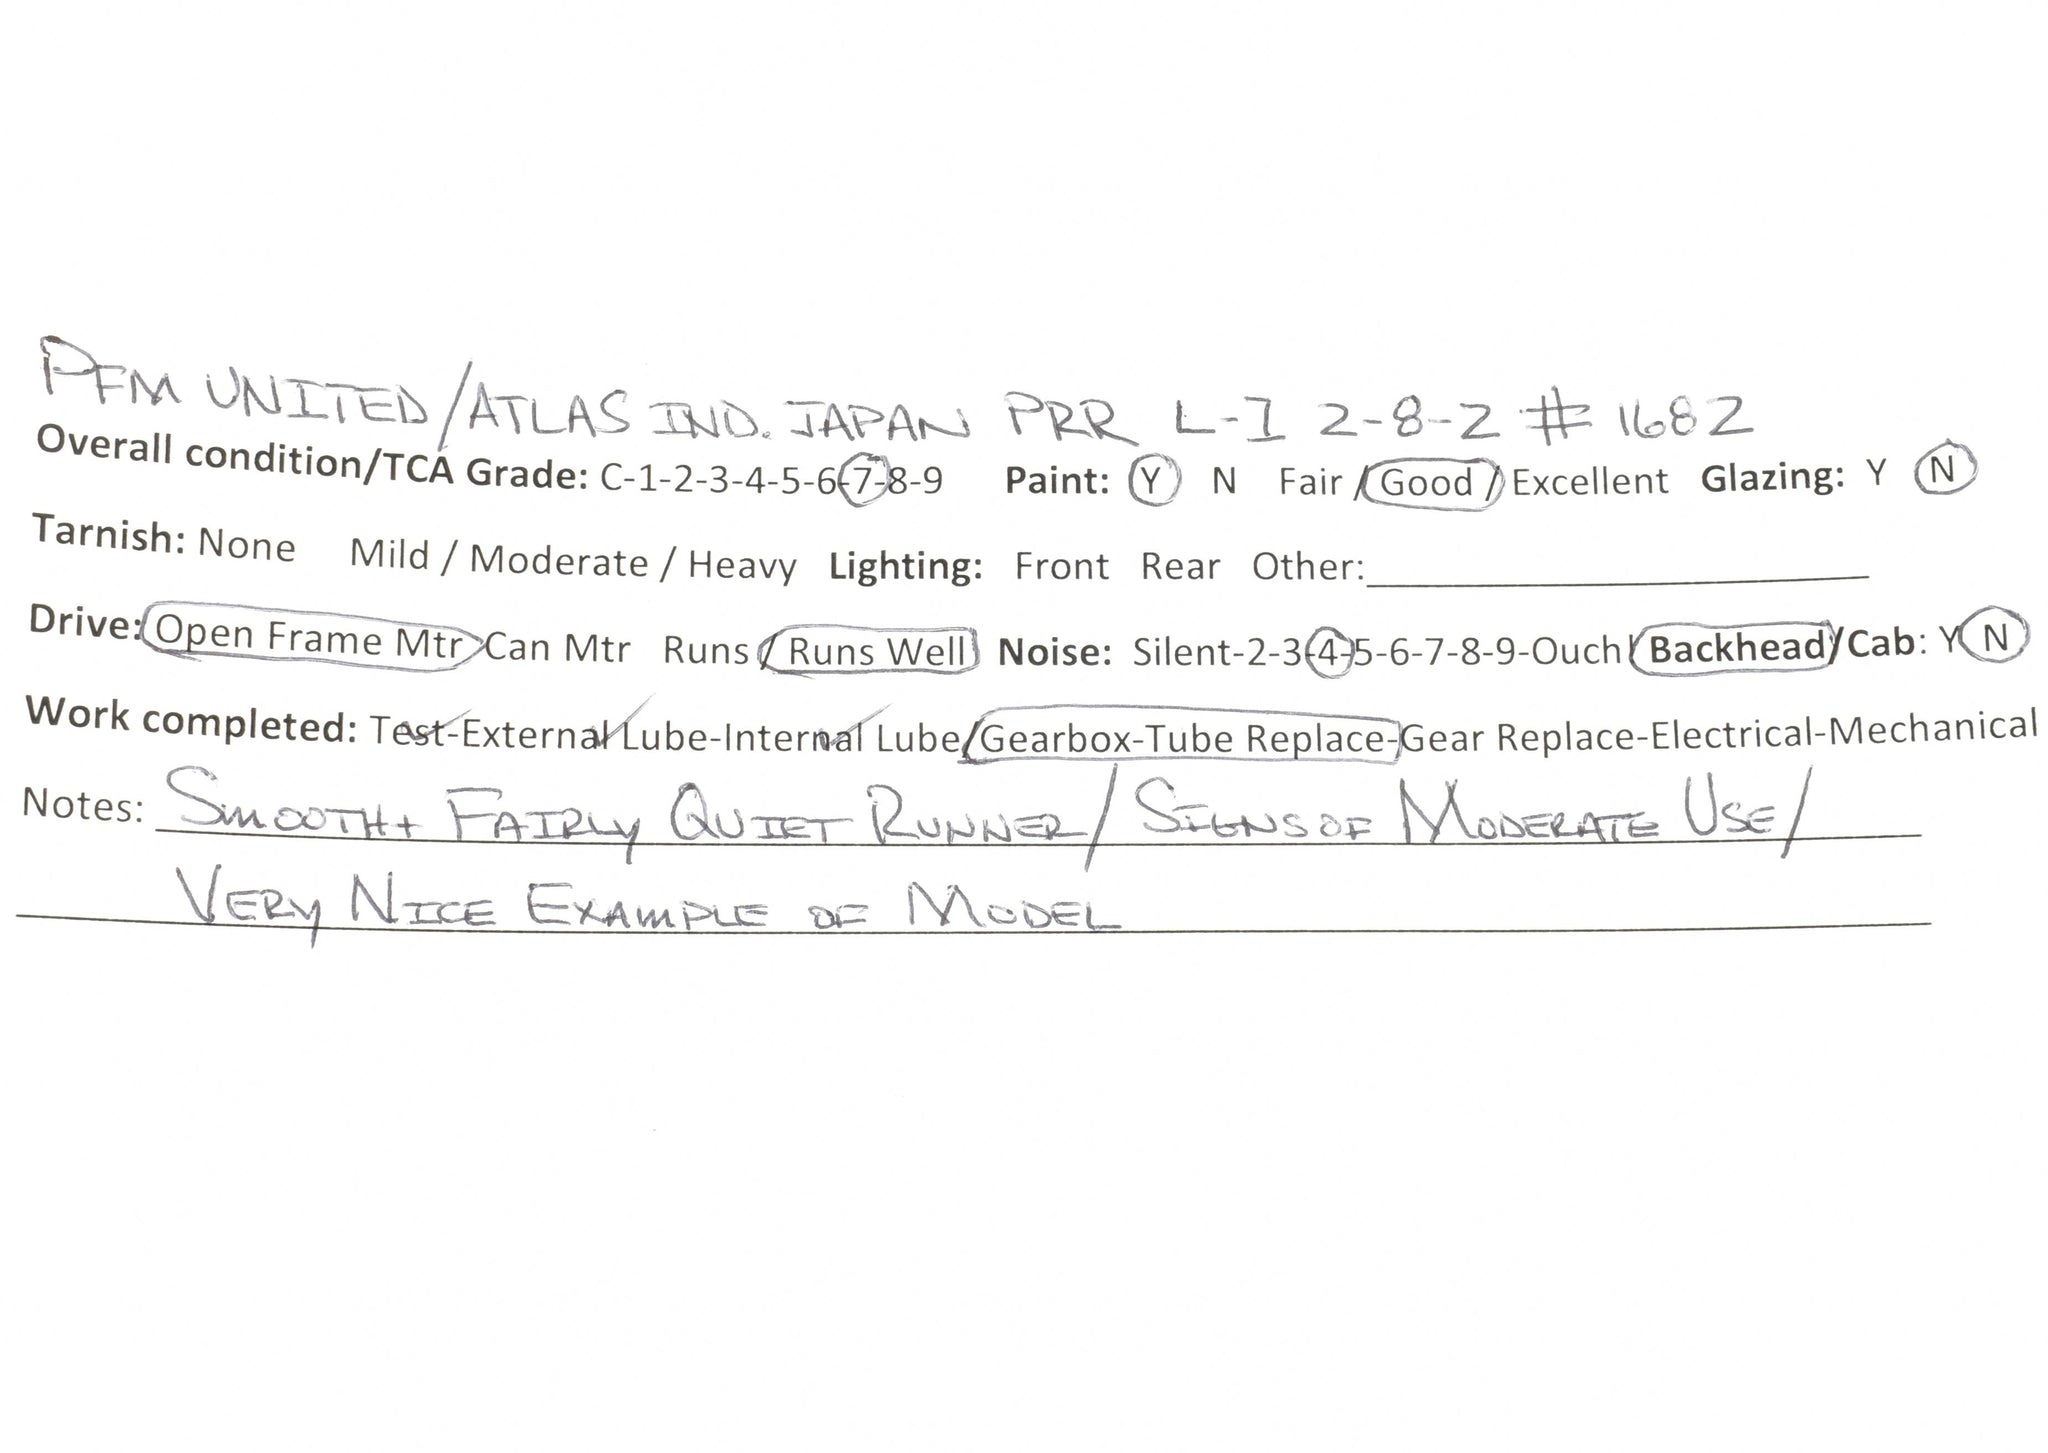 PFM UNITED/ATLAS IND. JAPAN PRR L-1 2-8-2 # 1682
Overall condition/TCA Grade: C-1-2-3-4-5-6-7-8-9 Paint: Y N Fair / Good / Excellent Glazing: Y N
Tarnish: None Mild / Moderate / Heavy Lighting: Front Rear Other:
Drive: Open Frame Mtr Can Mtr Runs / Runs Well Noise: Silent-2-3-4-5-6-7-8-9-Ouch Backhead/Cab: Y N
Work completed: Test-External Lube-Internal Lube/Gearbox-Tube Replace-Gear Replace-Electrical-Mechanical
Notes: SMOOTH + FAIRLY QUIET RUNNER/ SIGNS OF MODERATE USE/
VERY NICE EXAMPLE OF MODEL